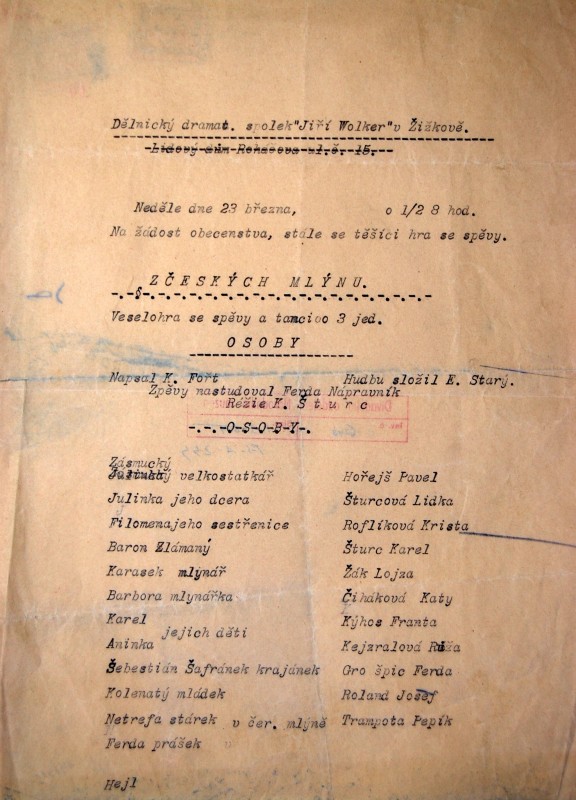 Dělnický dramat. spolek"Jiří Wolker"v Žižkově.
Lidový dům Rohačova ul.č. 15.--
Neděle dne 23 března, o 1/2 8 hod.
Na žádost obecenstva, stále se těšící hra se spěvy.
ZČESKÝCH MLÝNU.
Veselohra se spěvy a tancivo 3 jed.
OSOBY
Napsal K. Fořt Hudbu složil E. Starý.
Zpěvy nastudoval Ferda Nápravník
Režie K. Šturc
-.-.-O-S-O-B-Y-.-
Zásmucký
velkostatkář Hořejš Pavel
Julinka jeho dcera Šturcová Lidka
Filomenajeho sestřenice Roflíková Krista
Baron Zlámaný Šturc Karel
Karasek mlýnář Žák Lojza
Barbora mlynářka Čiháková Katy
Karel Kýhos Franta
jejich děti
Aninka Kejzralová Růža
Šebestián Šafránek krajánek Gro špic Ferda
Kolenatý mládek Roland Josef
Netrefa stárek v čer. mlýně Trampota Pepík
Ferda prášek
Hejl